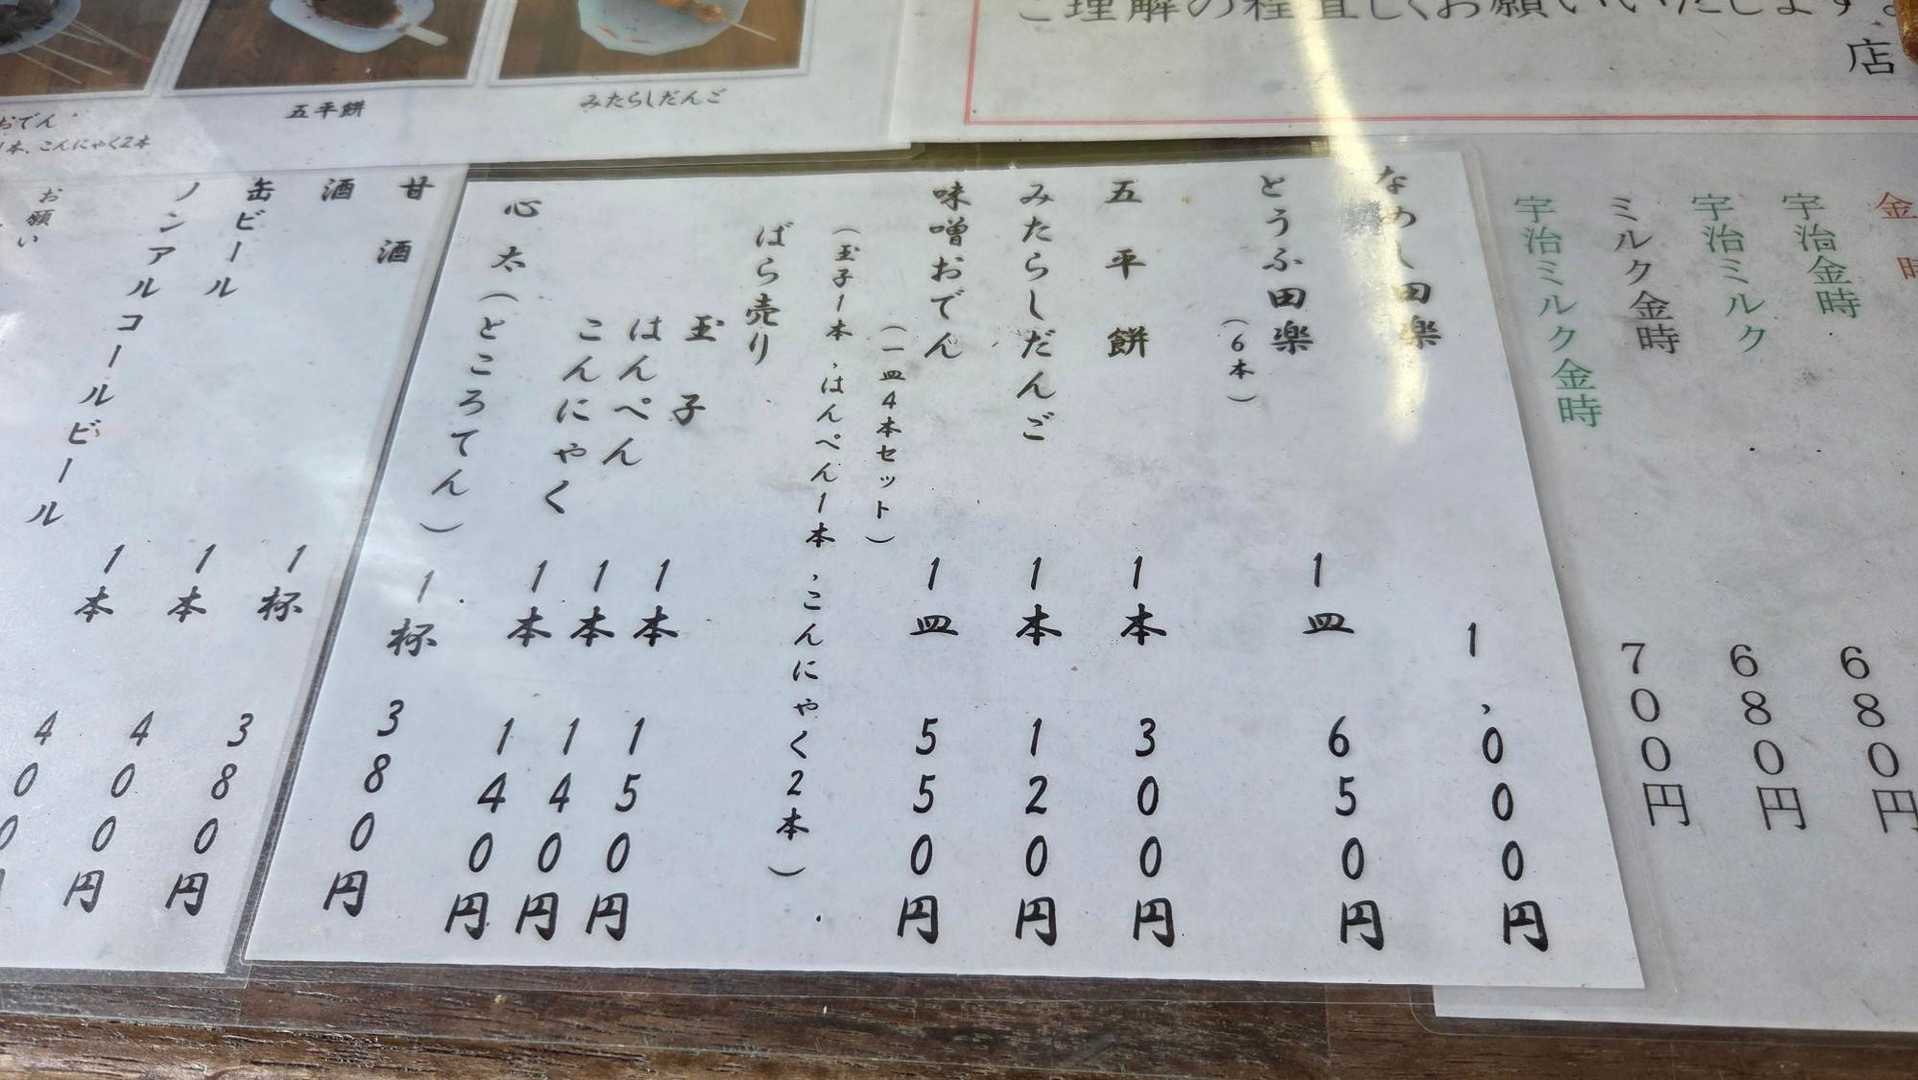 ご理解の程宜しくお願いいたします。
店
五平餅
みたらしだんご
おでん
1本、こんにゃく2本
金時
宇治金時 680円
宇治ミルク 680円
ミルク金時 700円
宇治ミルク金時
なめし田楽 1,000円
とうふ田楽 1皿 650円
(6本)
五平餅 1本 300円
みたらしだんご 1本 120円
味噌おでん 1皿 550円
(一皿4本セット)
(玉子1本、はんぺん1本、こんにゃく2本)
ばら売り
玉子 1本 150円
はんぺん 1本 140円
こんにゃく 1本 140円
心太(ところてん) 1杯 380円
甘酒 1杯 380円
酒 1本 400円
缶ビール 1本 400円
ノンアルコールビール
お願い